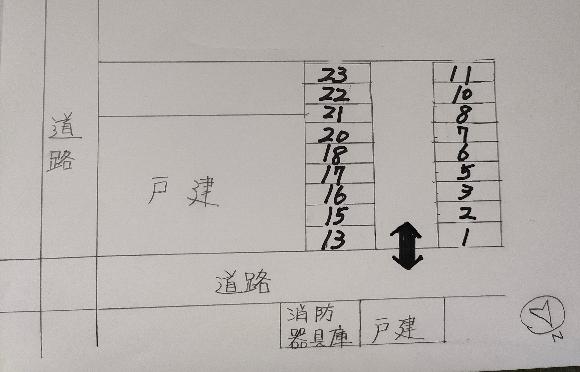 道路
戸建
23
22
21
20
18
17
16
15
13
11
10
8
7
6
5
3
2
1
道路
消防
器具庫
戸建
N